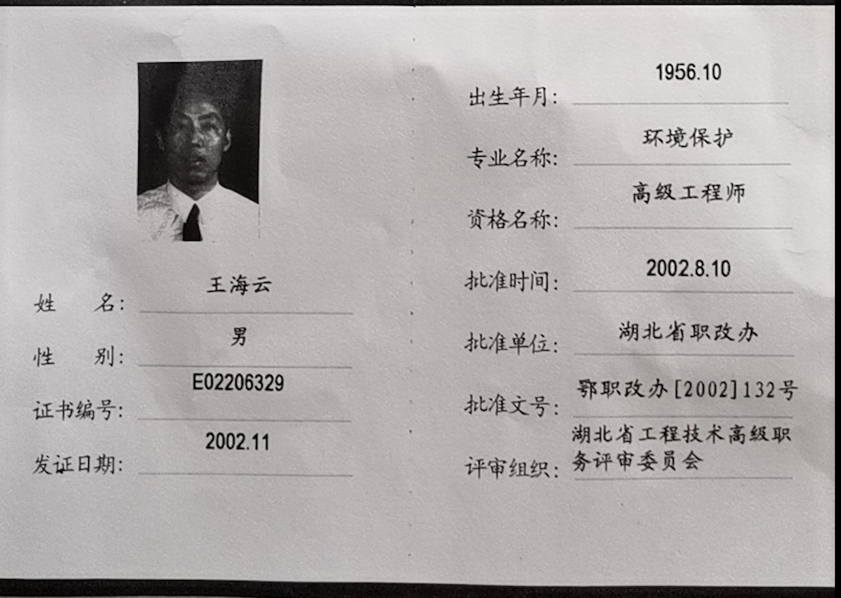 姓 名：王海云
性 别：男
证书编号：E02206329
发证日期：2002.11
出生年月：1956.10
专业名称：环境保护
资格名称：高级工程师
批准时间：2002.8.10
批准单位：湖北省职改办
批准文号：鄂职改办[2002]132号
评审组织：湖北省工程技术高级职
务评审委员会